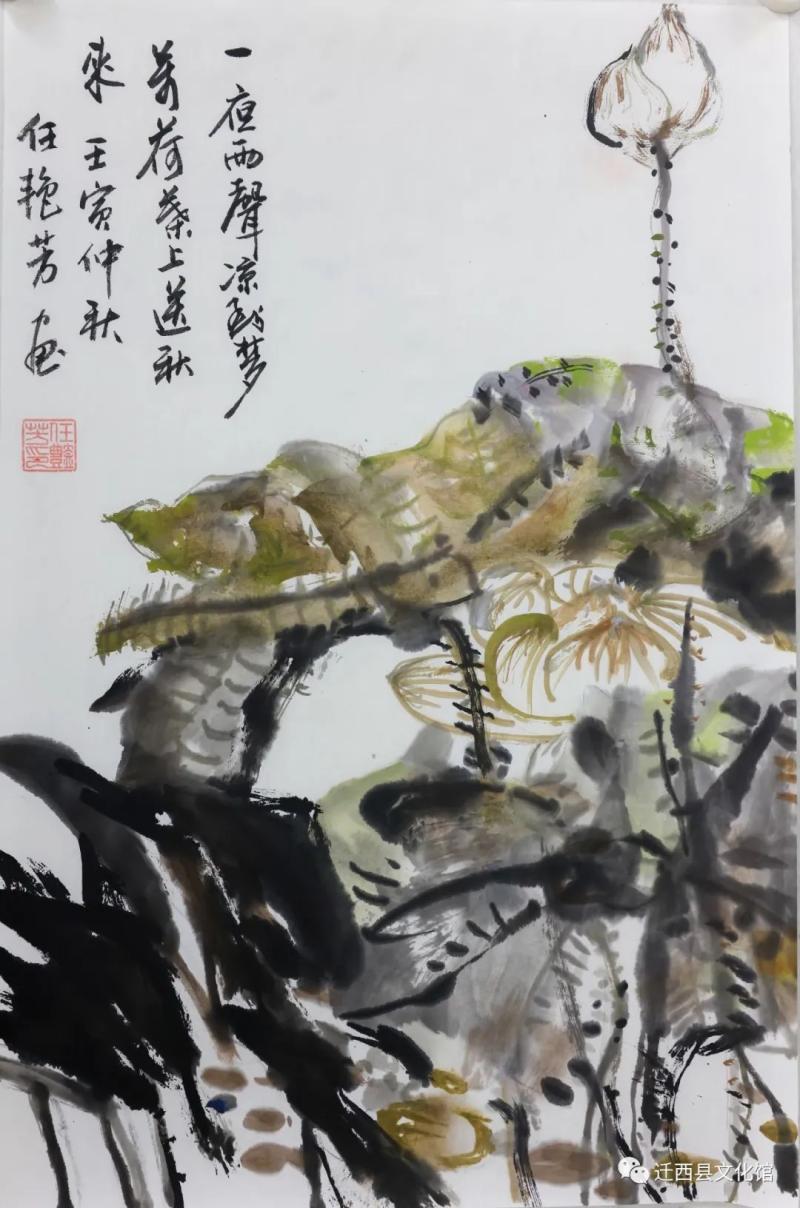 一夜雨聲凉到梦
萬荷葉上送秋
來 壬寅仲秋
任艳芳画
任豔芳印
迁西县文化馆